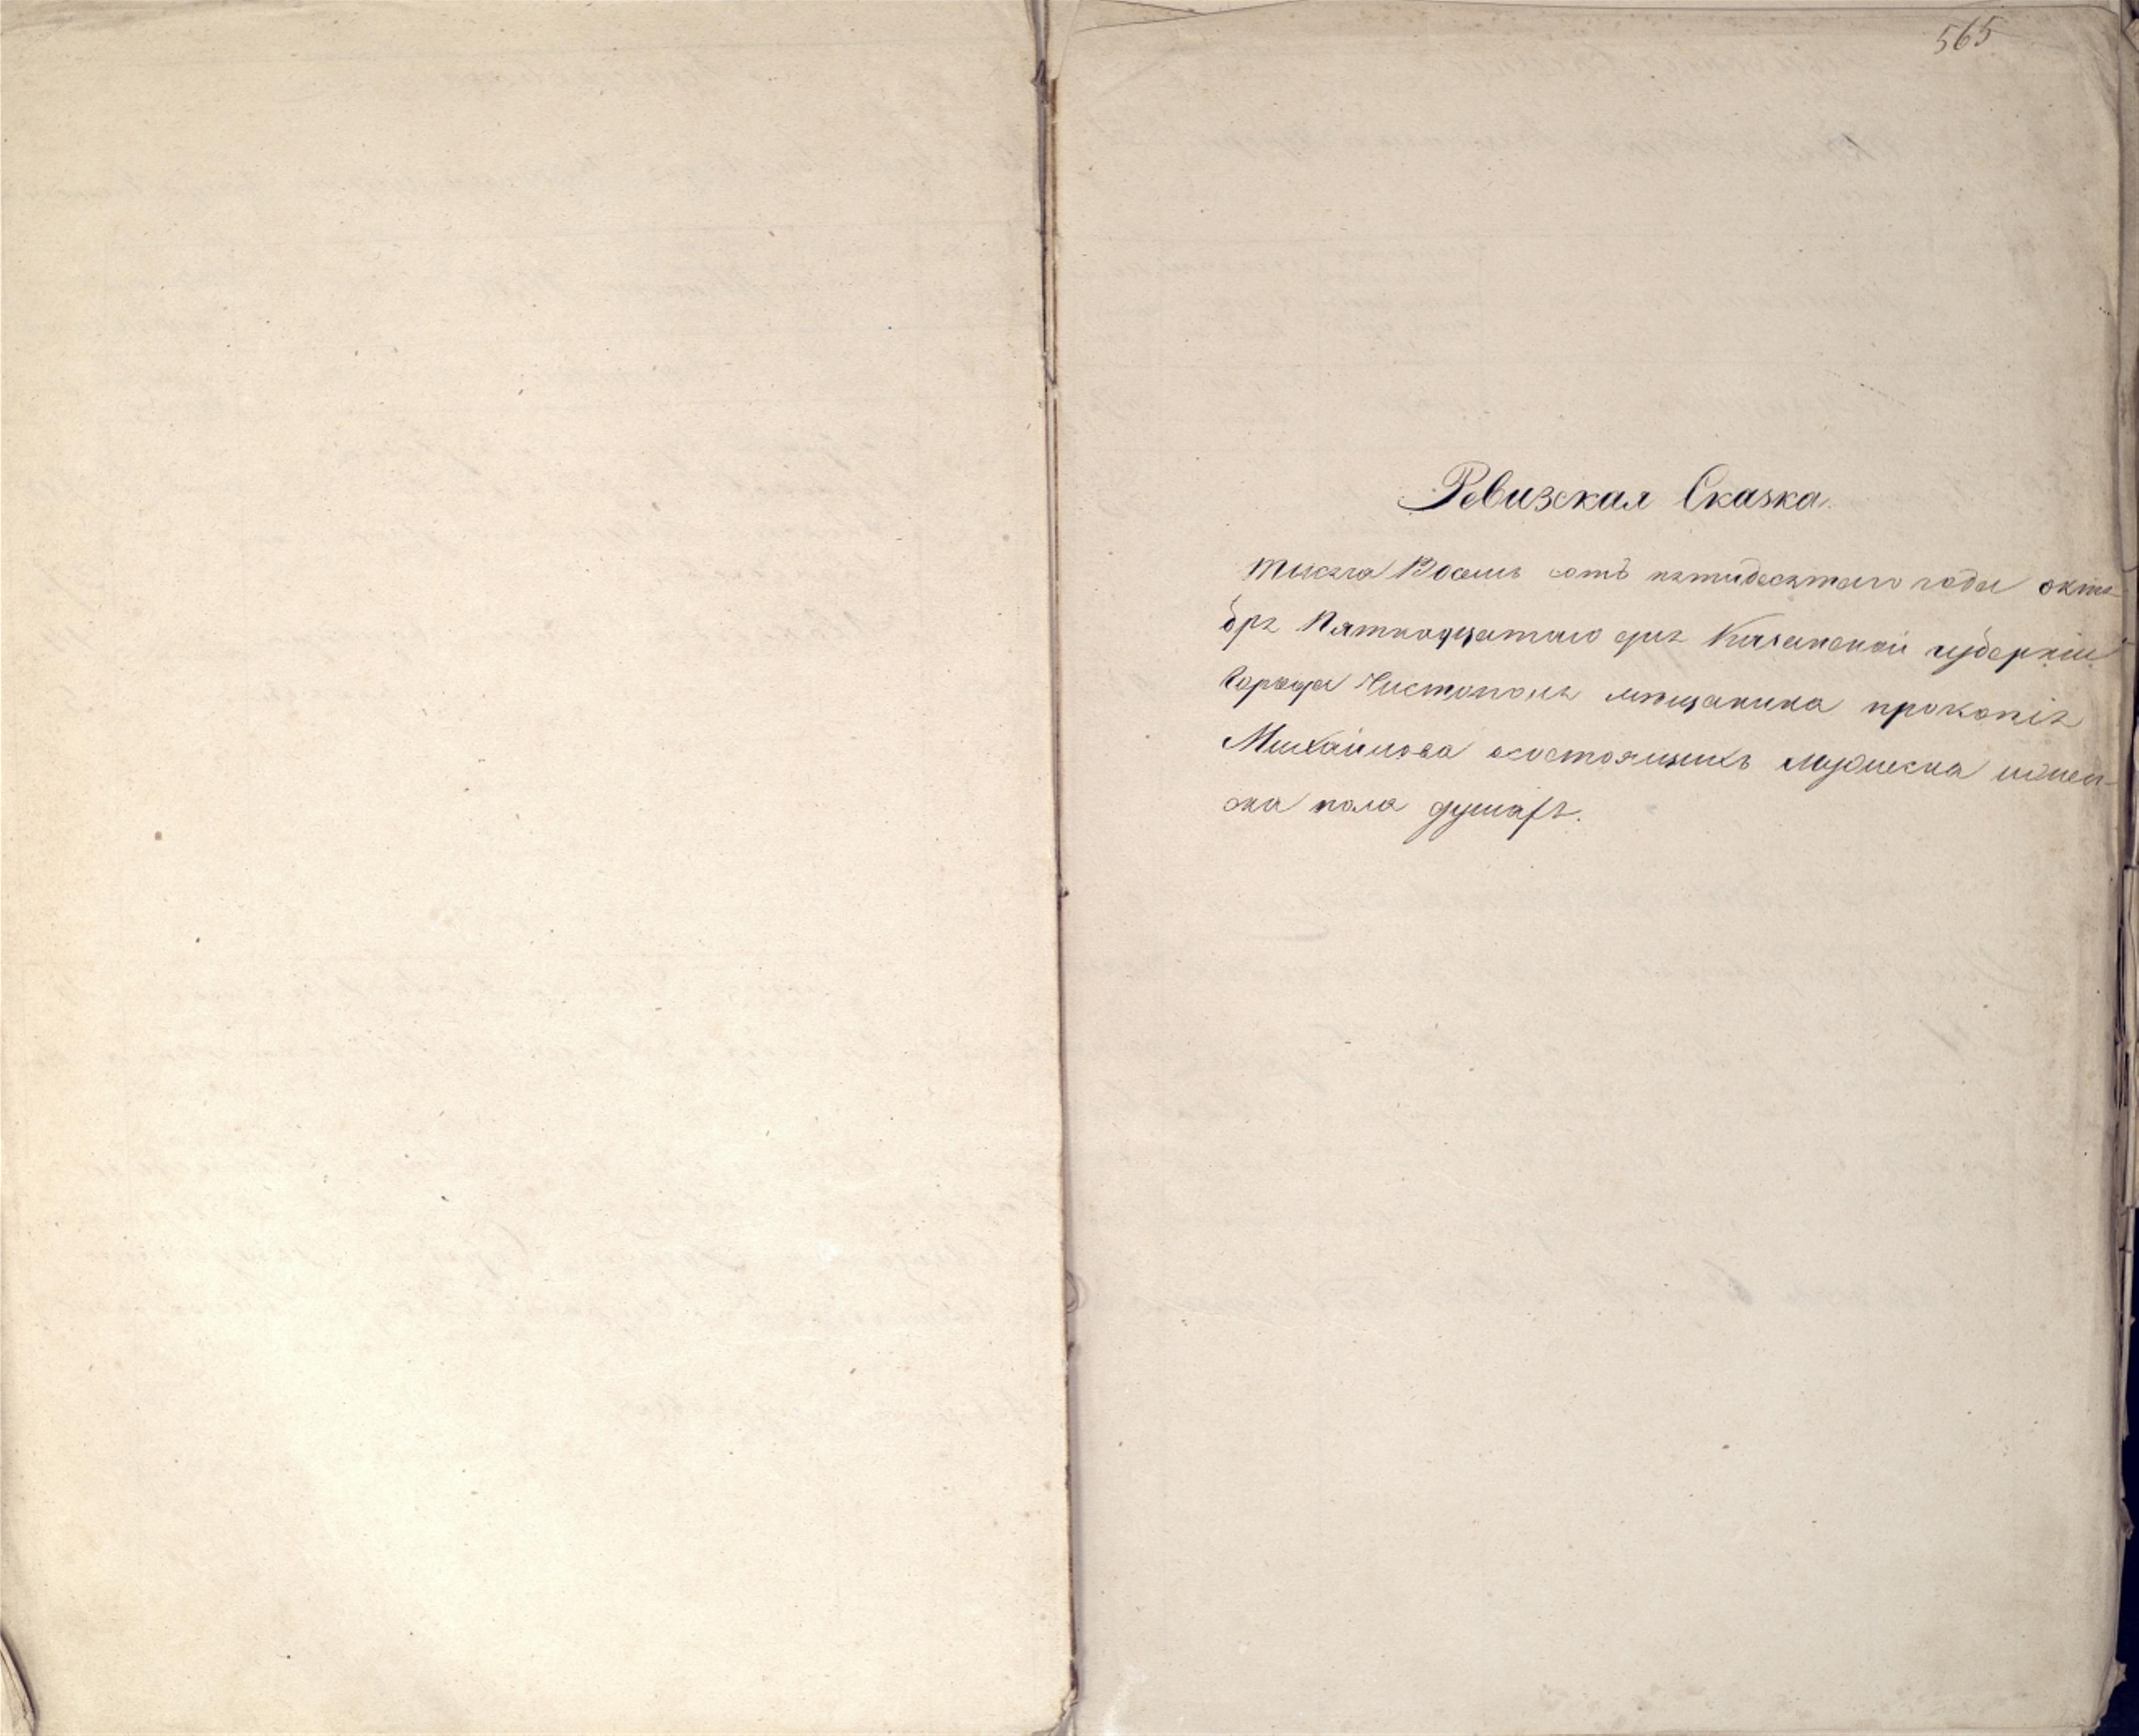 565
Ревизская Сказка.
тысяча Восемь сотъ пятидесятаго года октя-
бря Пятнадцатаго дня Казанской губерніи
Города Чистополя мѣщанина прокопія
Михайлова осостоящихъ мужеска ижен-
ска пола душахъ.